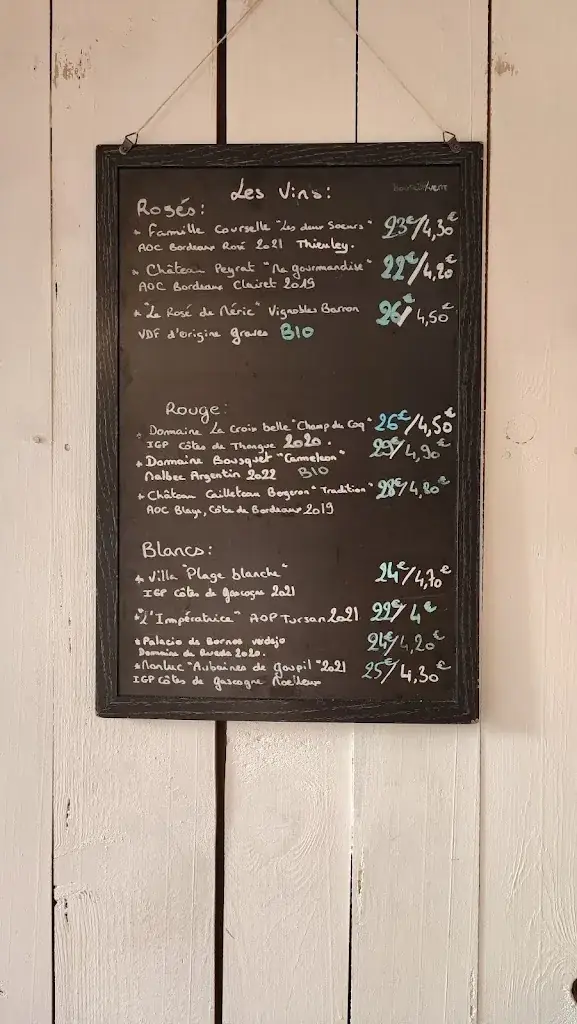 Les Vins:
Rosés:
* Famille Courselle "Les deux Soeurs" 23€/4,30€
AOC Bordeaux Rosé 2021 Thieuley.
* Château Peyrat "Ma gourmandise" 22€/4,20€
AOC Bordeaux Clairet 2019
* "Le Rosé de Néric" Vignobles Barron 26€/4,50€
VDF d'origine graves BIO
Rouge:
* Domaine La Croix belle "Champ du Coq" 26€/4,50€
IGP Côtes de Thongue 2020.
* Domaine Bousquet "Cameleon" 29€/4,90€
Malbec Argentin 2022 BIO
* Château Cailleteau Bergeron "Tradition" 28€/4,80€
AOC Blaye, Côte de Bordeaux 2019
Blancs:
* Villa "Plage blanche" 24€/4,70€
IGP Côtes de gascogne 2021
* "L'Impératrice" AOP Tursan 2021 22€/4€
* Palacio de Bornos verdejo 24€/4,20€
Domaine de Rueda 2020.
* Monluc "Aubaines de goupil" 2021 25€/4,30€
IGP Côtes de gascogne Moelleux